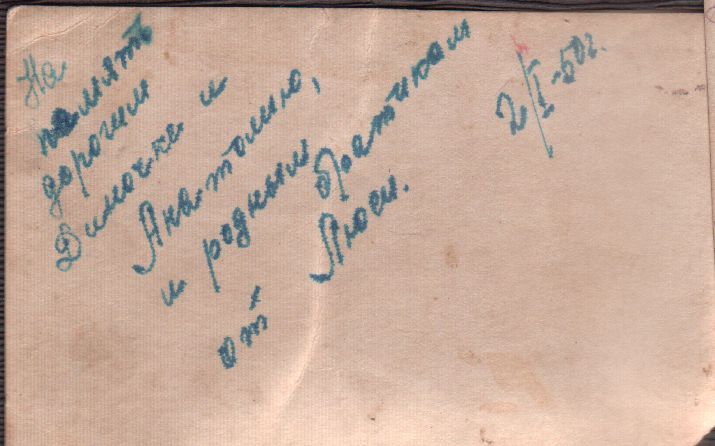 На
память
дорогим
Димочке и
Анатолию,
и родным братикам
от Люси.
2/I-50г.